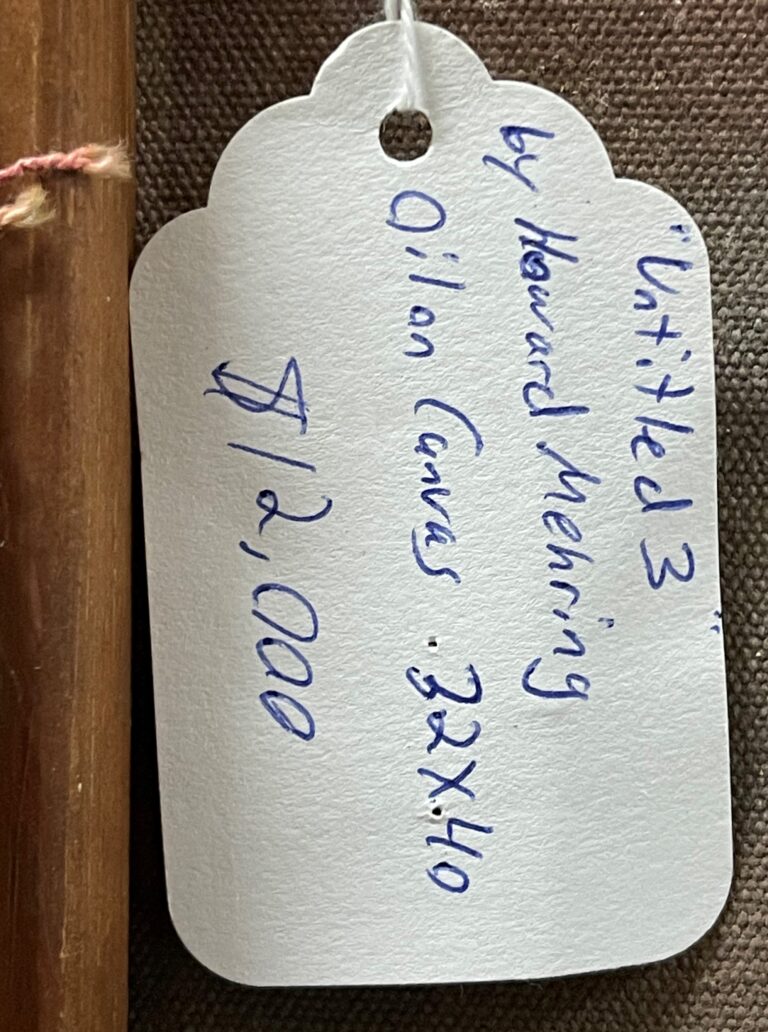 "Untitled 3"
by Howard Mehring
Oil on Canvas . 32x40
$12,000